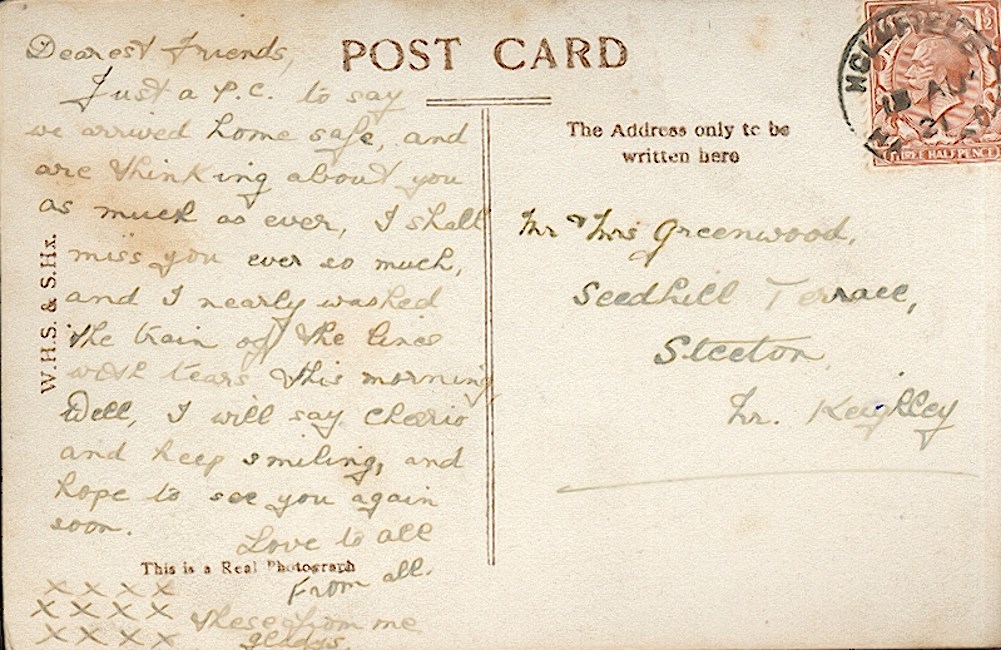 POST CARD
Dearest Friends,
Just a P.C. to say
we arrived home safe, and
are thinking about you
as much as ever, I shall
miss you ever so much,
and I nearly washed
the train off the lines
with tears this morning
Well, I will say cheerio
and keep smiling, and
hope to see you again
soon.
Love to all
From all.
x x x x
x x x x
x x x x
these from me
gladys.
This is a Real Photograph
W.H.S. & S. Hx.
The Address only to be
written here
Mr & Mrs Greenwood,
Seedhill Terrace,
Steeton,
Nr. Keighley
1½
HELLIFIELD
21
THREE HALFPENCE